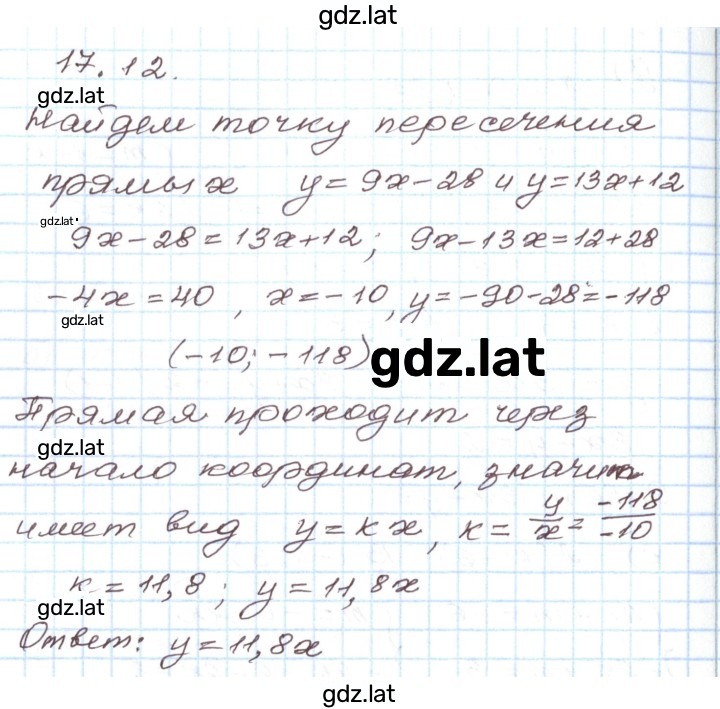 gdz.lat
17.12.
gdz.lat
Найдем точку пересечения
прямых y=9x-28 и y=13x+12
gdz.lat
9x-28=13x+12; 9x-13x=12+28
-4x=40, x=-10, y=-90-28=-118
gdz.lat
(-10; -118)
gdz.lat
Прямая проходит через
gdz.lat
начало координат, значит
имеет вид y=kx, k= y/x = -118/-10
k=11,8; y=11,8x
gdz.lat
Ответ: y=11,8x
gdz.lat